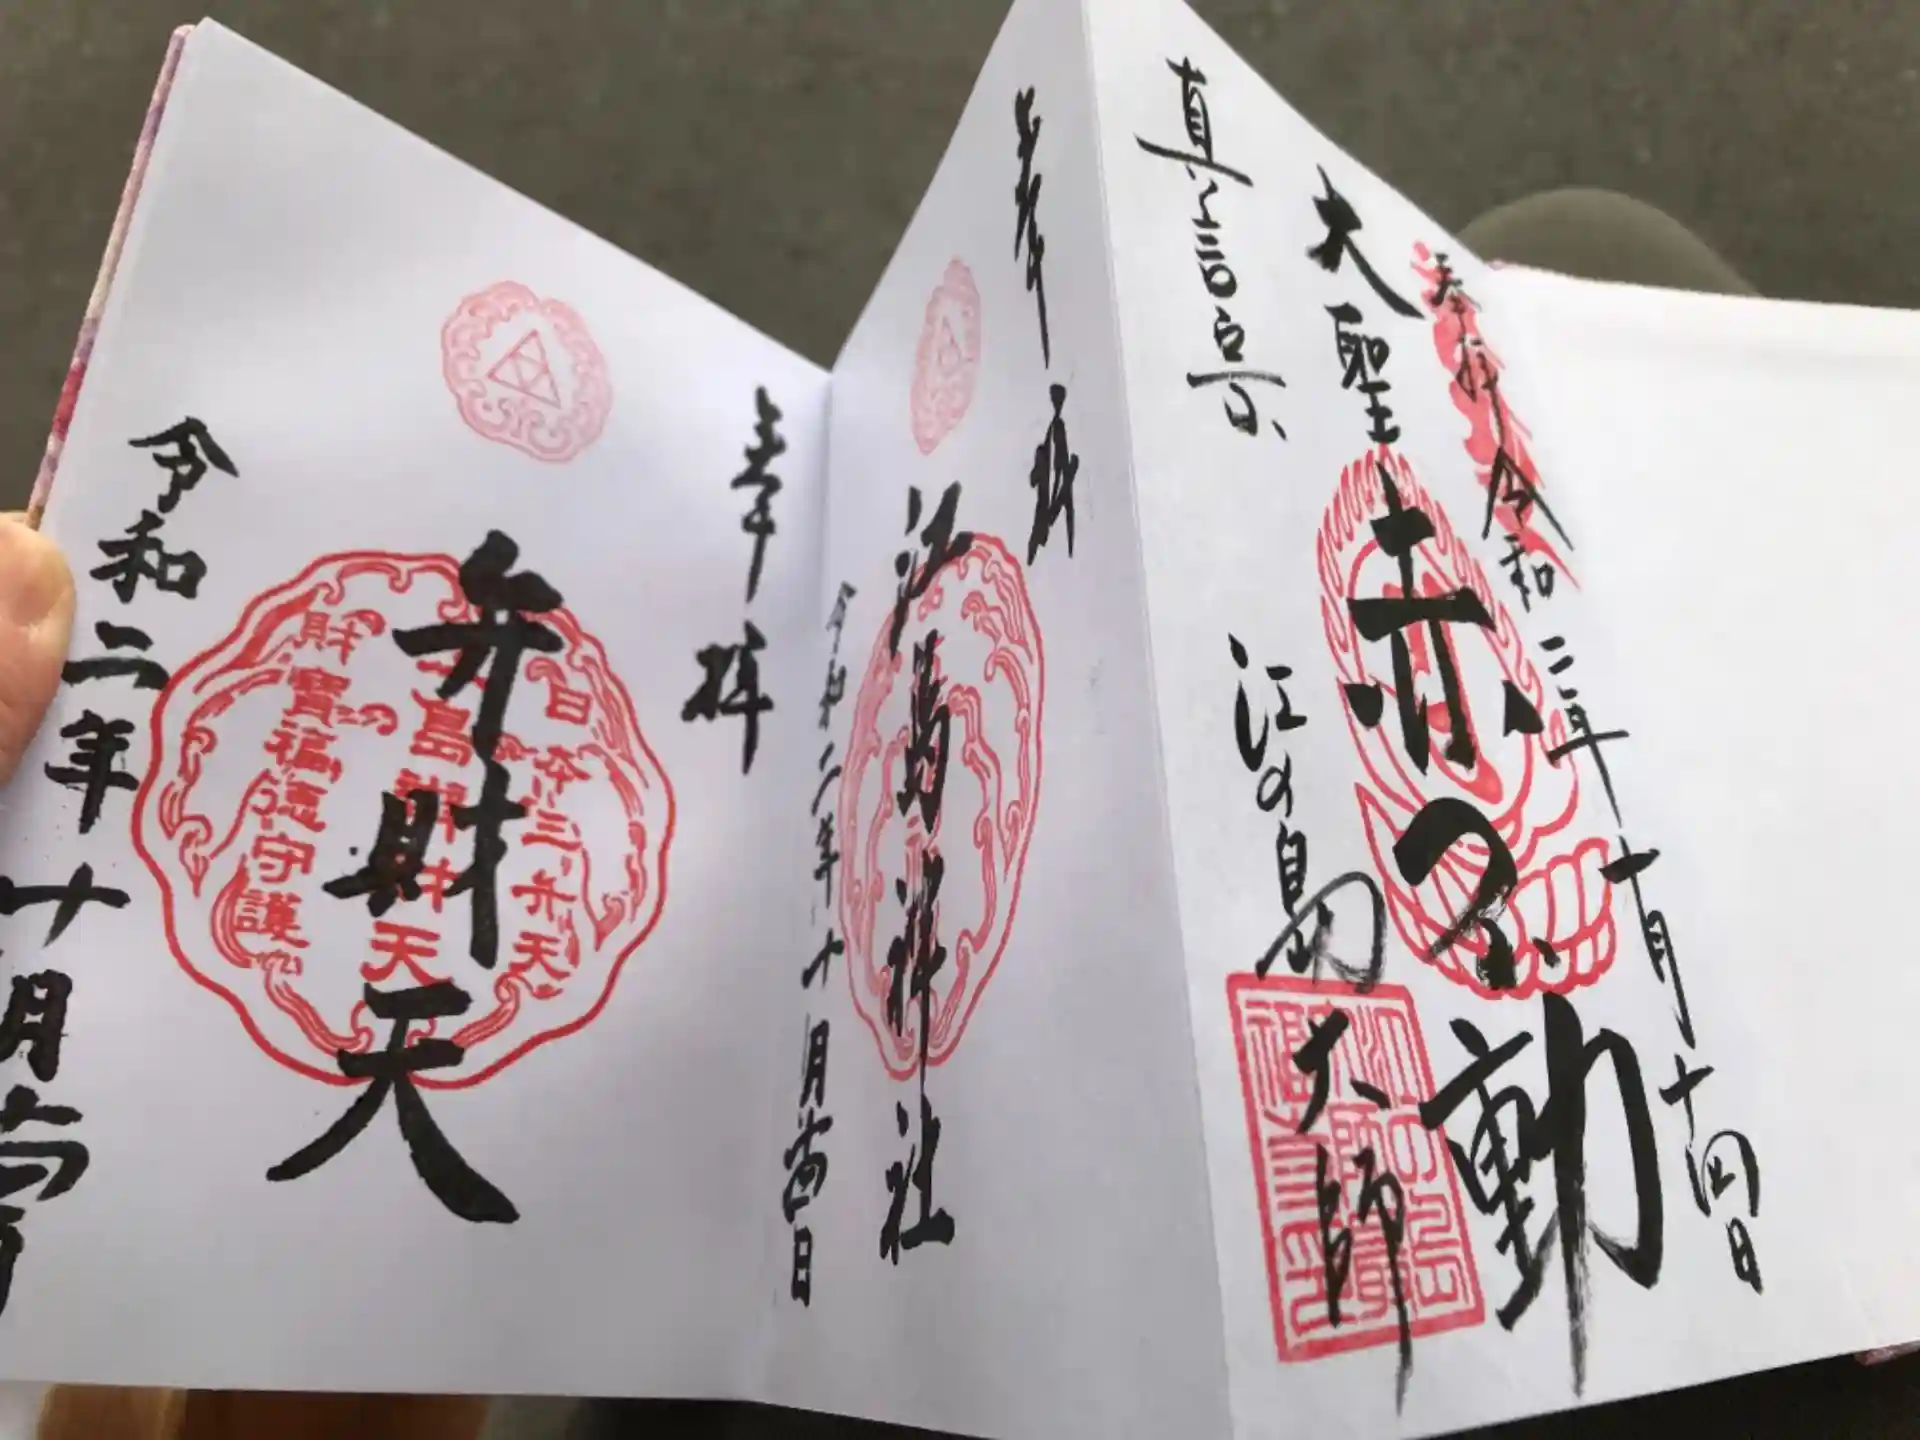 真言宗
大聖
奉拝 令和二年十月十四日
赤不動
江の島大師
奉拝
江島神社
令和二年十月十四日
奉拝
弁財天
日本三弁天
島辨財天
財寶福徳守護
令和二年十月